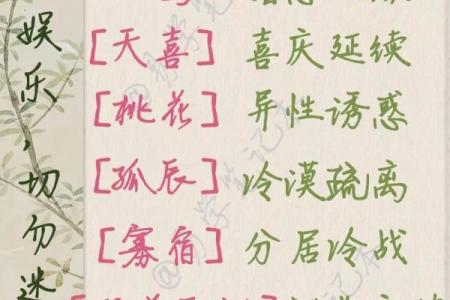 [天喜] 喜庆延续
[桃花] 异性诱惑
[孤辰] 冷漠疏离
[寡宿] 分居冷战
娱乐,切勿迷
@易学笔记本